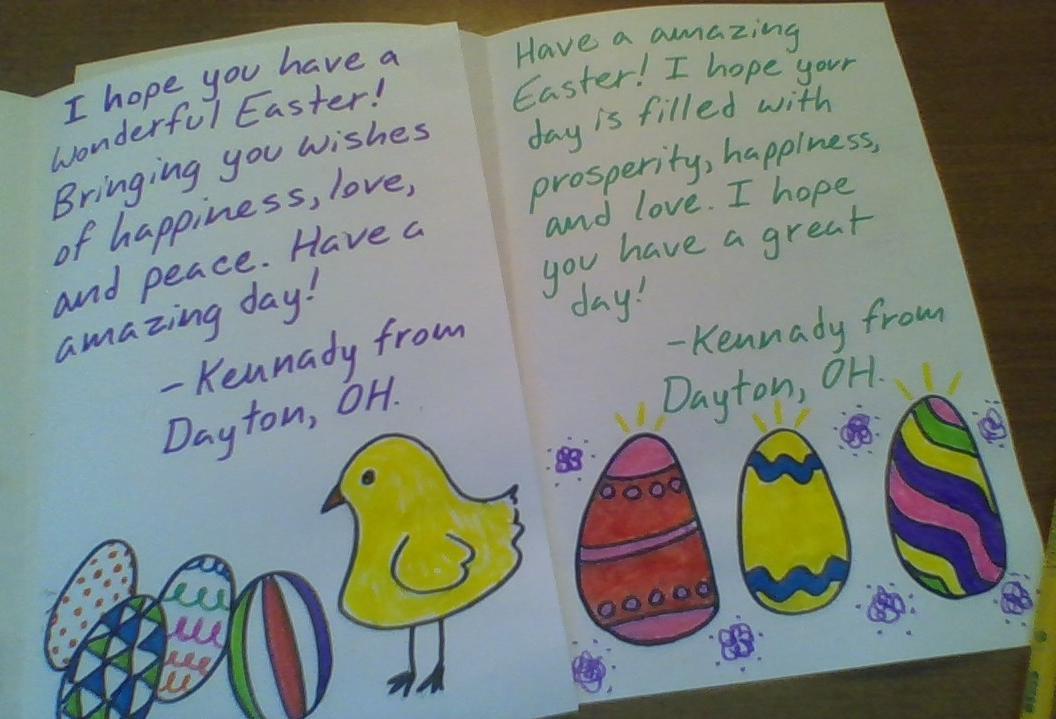 I hope you have a
wonderful Easter!
Bringing you wishes
of happiness, love,
and peace. Have a
amazing day!
-Kennady from
Dayton, OH.
Have a amazing
Easter! I hope your
day is filled with
prosperity, happiness,
and love. I hope
you have a great
day!
-Kennady from
Dayton, OH.